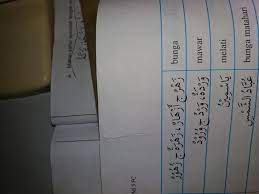 bunga زَهْرٌ ج أَزْهَارٌ، زَهْرَةٌ ج زُهُوْرٌ
mawar وَرْدَةٌ، وَرْدٌ ج وُرُوْدٌ
melati يَاسَمِيْنٌ
bunga matahari عَبَّادُ الشَّمْسِ